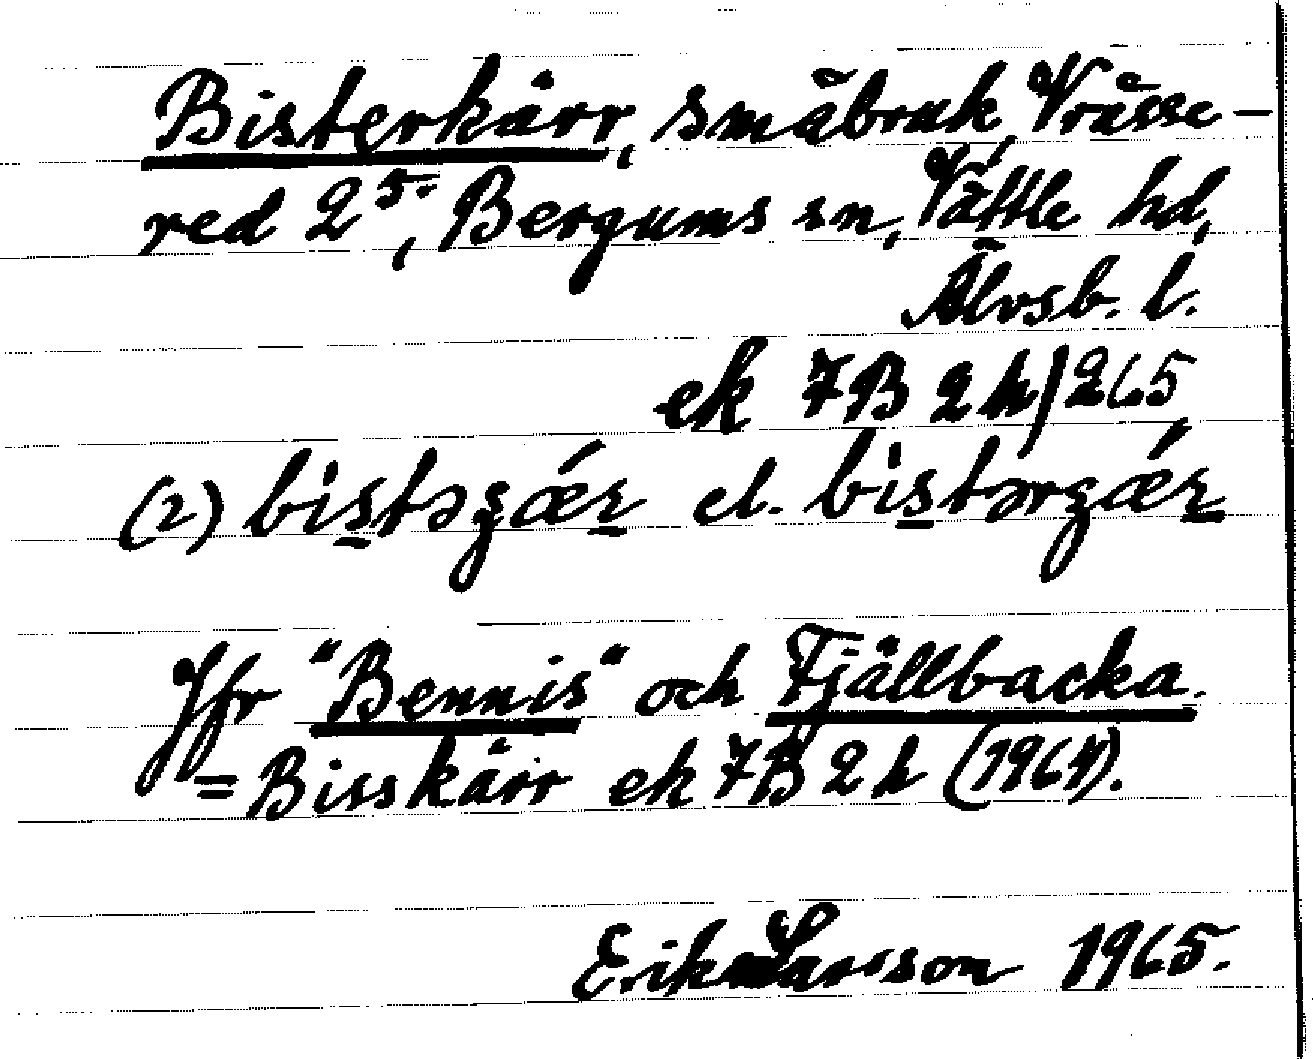 Bisterkärr, småbruk, Vråsse-
red 2⁵, Bergums sn, Vättle hd,
Älvsb. l.
ek 7B 2h/265
(2) bistəgǽr el. bistərgǽr
Jfr "Bennis" och Fjällbacka.
= Bisskärr ek 7B 2h (1964).
Erik Larsson 1965.